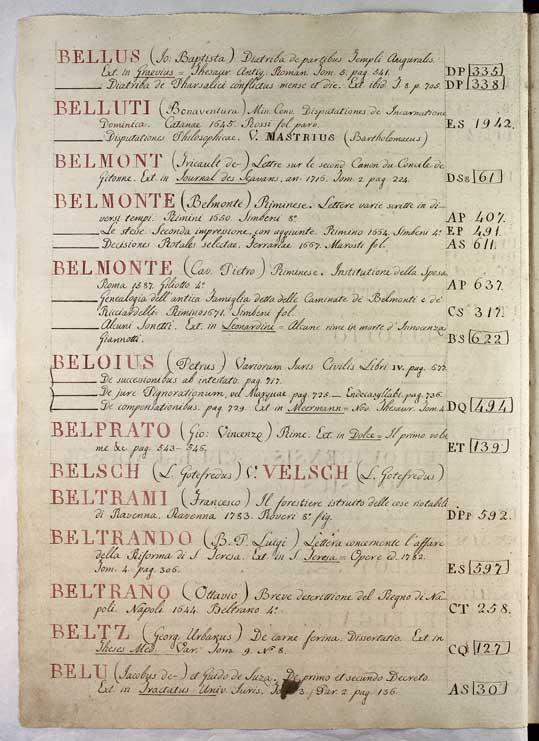 BELLUS (Jo: Baptista) Diatriba de partibus Templi Auguralis.
Ext. in Graevius = Thesaur. Antiq. Roman. Tom. 5. pag. 541. DP 335
Diatriba de Pharsalici conflictus mense et die. Ext. ibid. T. 8 p. 705. DP 338
BELLUTI (Bonaventura) Min. Conv. Disputationes de Incarnatione
Dominica. Catanae 1645. Rossi fol. parv. ES 1942.
Disputationes Philosophicae. V. MASTRIUS (Bartholomaeus)
BELMONT (Iricault de-) Lettre sur le second Canon du Concile de
Gitonne. Ext. in Journal des Savans, an. 1716. Tom. 2 pag. 224. DSs 61
BELMONTE (Belmonte) Riminese. Lettere varie scritte in di-
versi tempi. Rimini 1650. Simbeni 8º AP 407.
Le stesse. Seconda impressione, con aggiunte. Rimino 1654. Simbeni 4º EP 491.
Decisiones Rotales selectae. Ferrariae 1667. Maresti fol. AS 611.
BELMONTE (Cav. Pietro) Riminese. Institutione della Sposa
Roma 1587. Giliotto 4º AP 637.
Genealogia dell'antica Famiglia detta delle Caminate de' Belmonti e de'
Ricciardelli. Rimino 1671. Simbeni fol. CS 317.
Alcuni Sonetti. Ext. in Leonardini = Alcune rime in morte d'Innocenza
Giannotti. BS 622
BELOIUS (Petrus) Variorum Juris Civilis Libri IV. pag. 677.
De successionibus ab intestato. pag. 717.
De jure Pignorationum, vel Marquae. pag. 725 — Endecasyllabi. pag. 736.
De compensationibus. pag. 729. Ext. in Meermann = Nov. Thesaur. Tom. 4. DQ 494
BELPRATO (Gio: Vincenzo) Rime. Ext. in Dolce = Il primo volu
me &c. pag. 543-545. ET 139
BELSCH (L. Gotefredus) V. VELSCH (L. Gotefredus)
BELTRAMI (Francesco) Il forestiere istruito delle cose notabili
di Ravenna. Ravenna 1783. Roveri 8º fig. DPp 592.
BELTRANDO (B. P. Luigi) Lettera concernente l'affare
della Riforma di S. Teresa. Ext. in S. Teresa = Opere ed. 1782.
Tom. 4. pag. 306. ES 597
BELTRANO (Ottavio) Breve descrittione del Regno di Na
poli. Napoli 1644. Beltrano 4º CT 258.
BELTZ (Georg. Urbanus) De carne ferina. Dissertatio. Ext. in
Theses Med. Var. Tom. 9. Nº 8. CQ 127
BELU (Jacobus de-) et Guido de Suza. De primo et secundo Decreto.
Ext. in Tractatus Univ. Juris. Tom. 3. Par. 2 pag. 136. AS 30